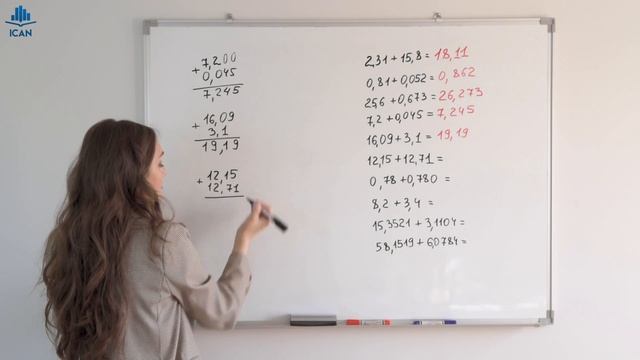 ICAN
7,200
+ 0,045
7,245
+ 16,09
3,1
19,19
+ 12,15
12,71
2,31 + 15,8 = 18,11
0,81 + 0,052 = 0,862
25,6 + 0,673 = 26,273
7,2 + 0,045 = 7,245
16,09 + 3,1 = 19,19
12,15 + 12,71 =
0,78 + 0,780 =
8,2 + 3,4 =
15,3521 + 3,1104 =
58,1519 + 6,0784 =